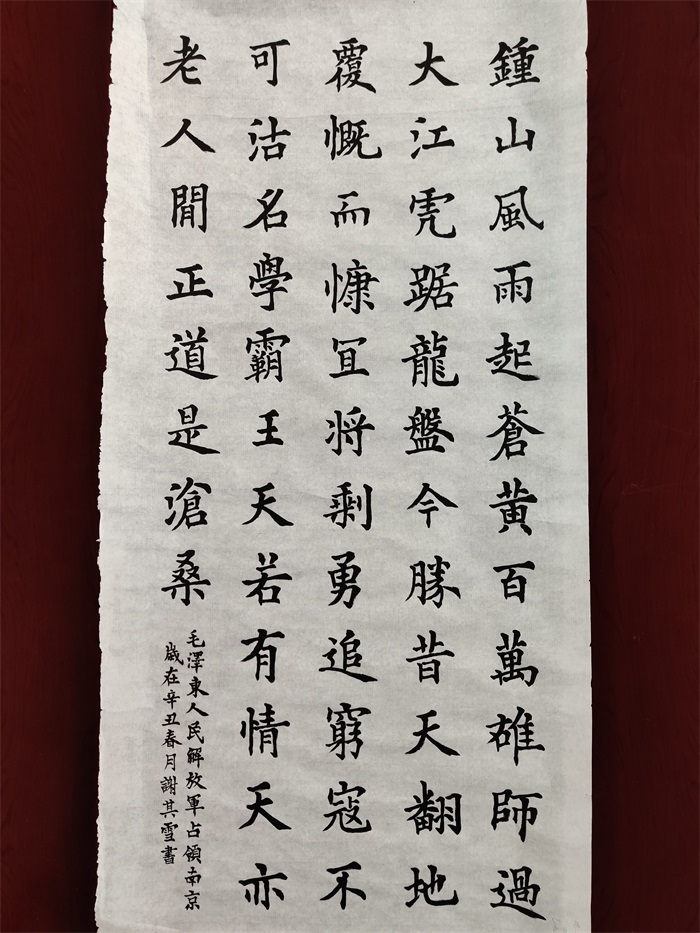 鍾山風雨起蒼黄百萬雄師過
大江虎踞龍盤今勝昔天翻地
覆慨而慷宜将剩勇追窮寇不
可沽名學霸王天若有情天亦
老人間正道是滄桑
毛澤東人民解放軍占領南京
歲在辛丑春月謝其雪書